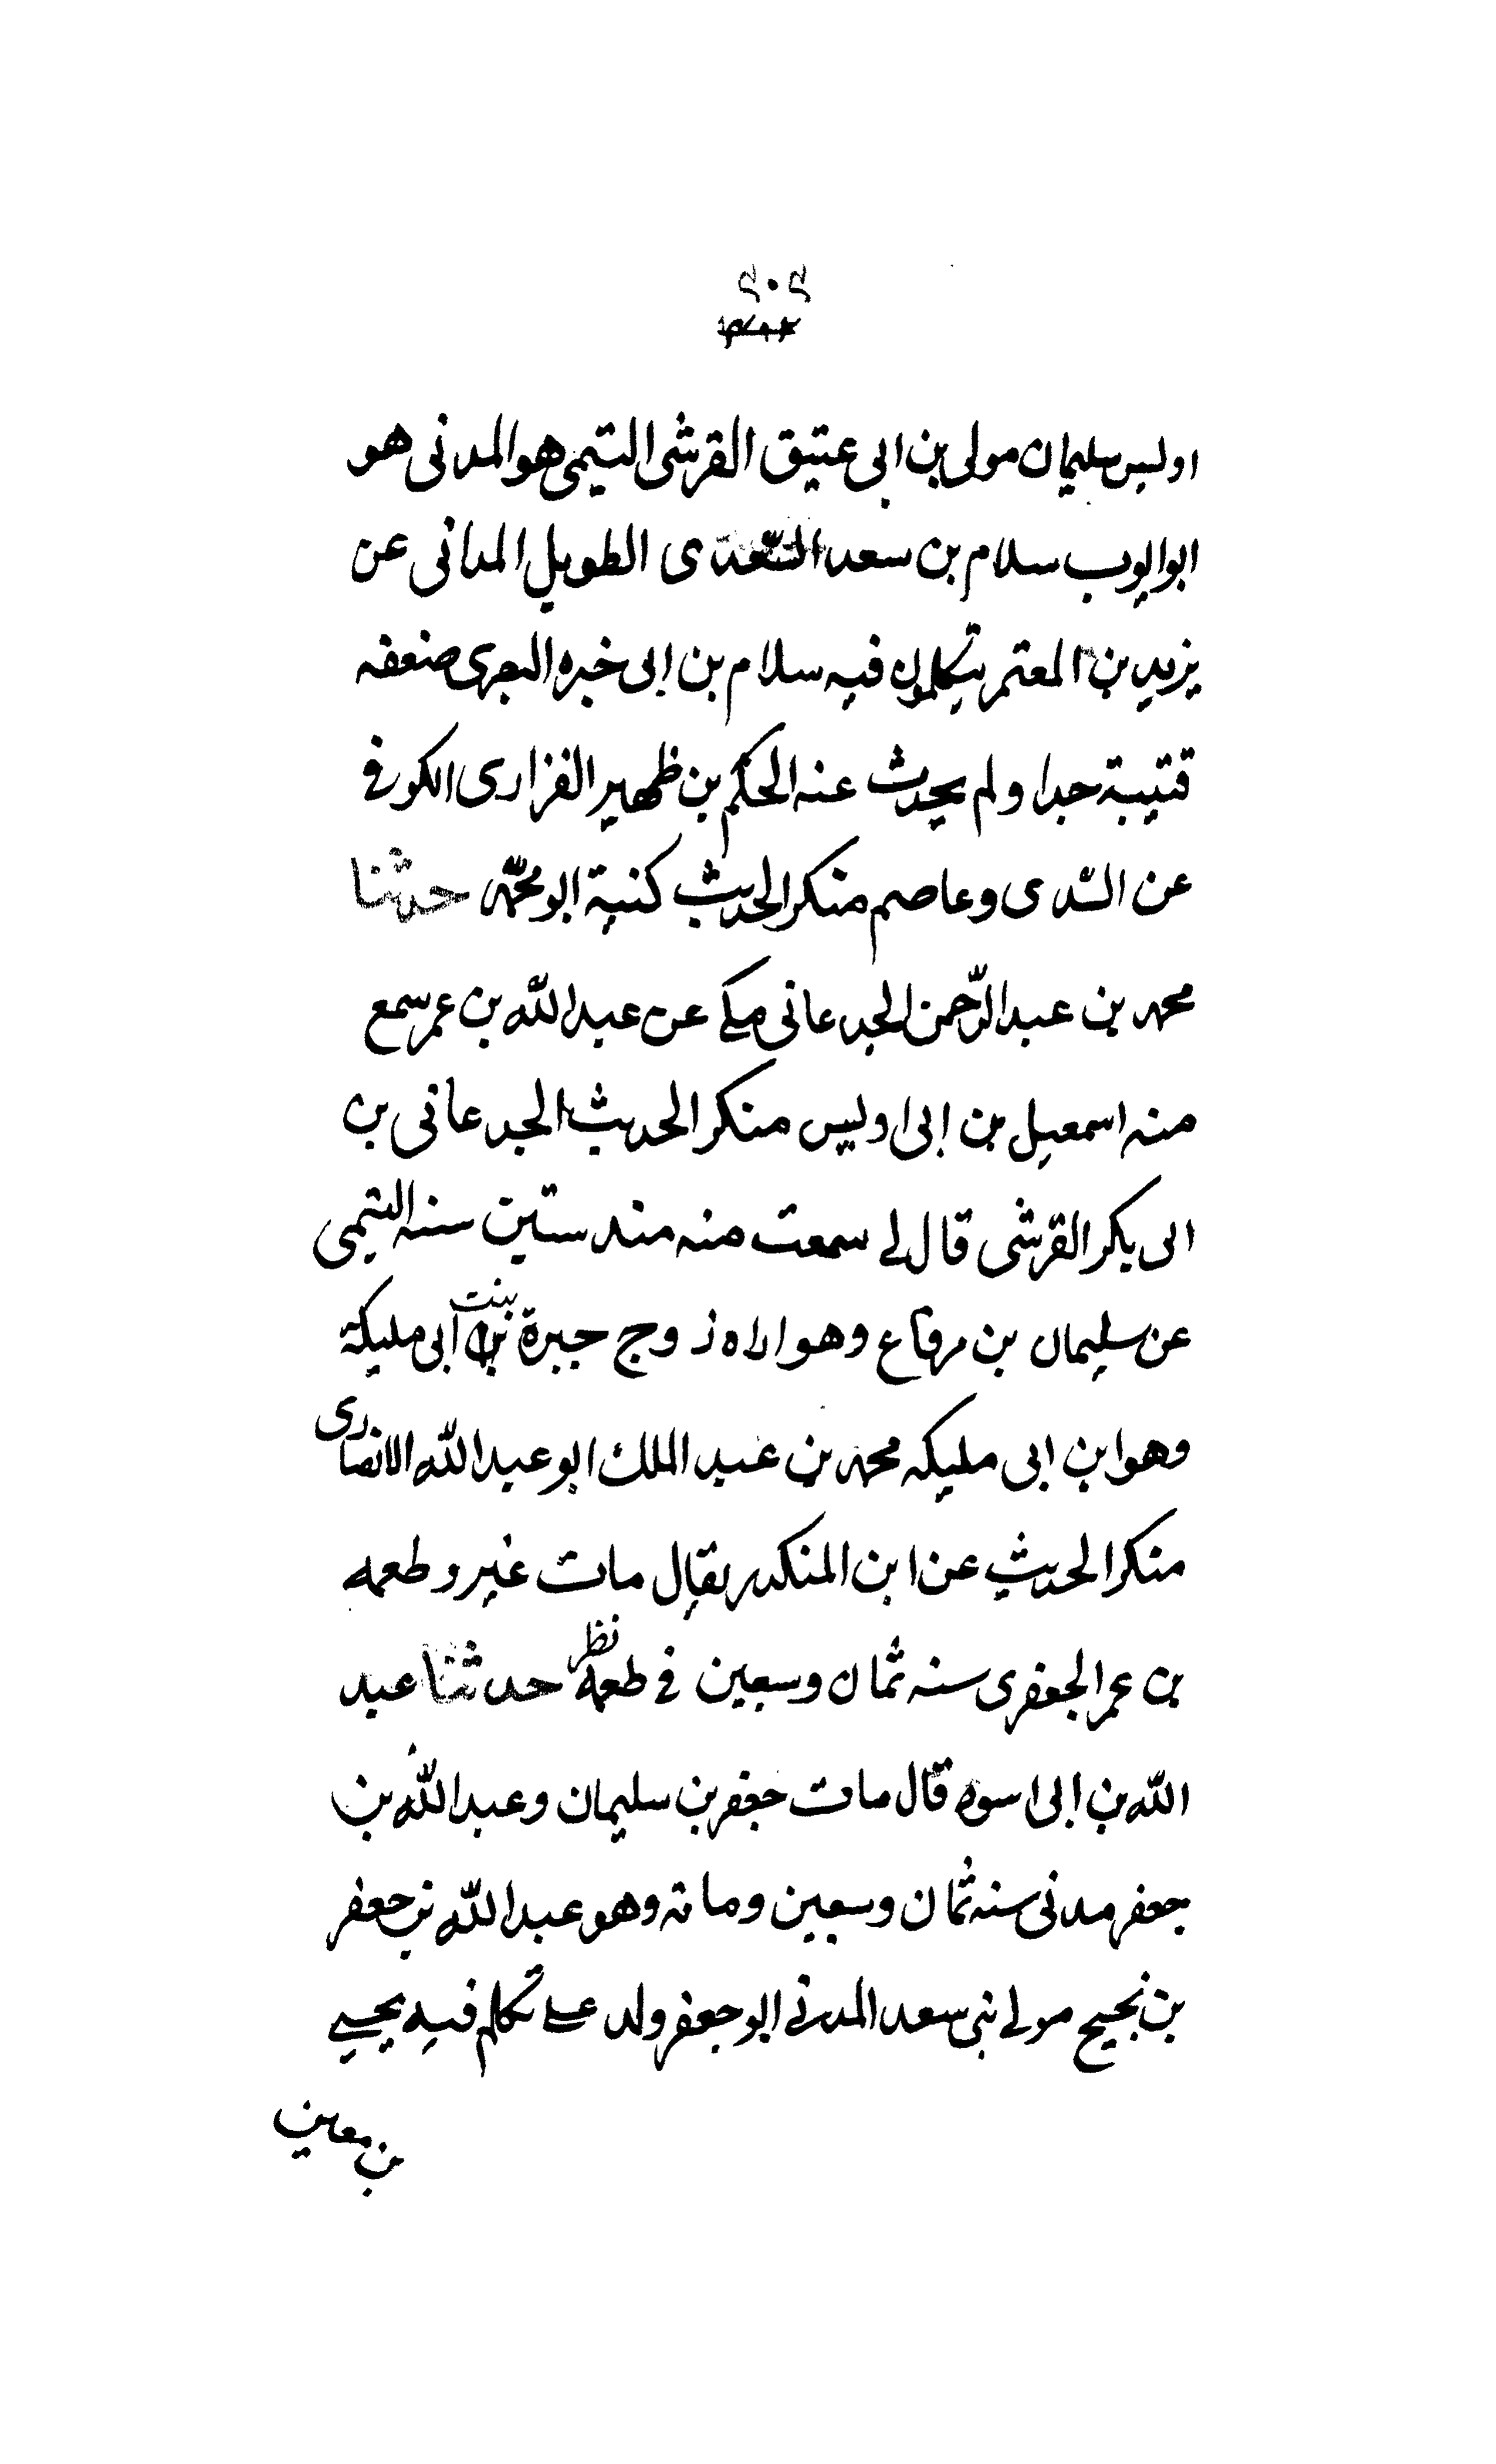 ۲۰۲
اوليس سليمان مولى بن ابى عتيق القرشى التيمى هو المدنى هو
ابو ايوب سلام بن سعد السّعدى الطويل المدانى عن
يزيد بن المعتمر يتكلمون فيه سلام بن ابى خبره البصرى ضعفه
قتيبة جدا ولم يحدث عنه الحكم بن ظهير الفزارى الكوفى
عن السّدى وعاصم منكر الحديث كنية ابو محمّد حدثنا
محمد بن عبد الرّحمن الجدعانى مكى عن عبد اللّه بن عمر سمع
منه اسمعيل بن ابى اوليس منكر الحديث الجدعانى بن
ابى بكر القرشى قال لى سمعت منه منذ ستين سنه التيمى
عن سليمان بن مرقاع وهو اراه زوج جبرة بنت ابى مليكة
وهو ابن ابى مليكه محمد بن عبد الملك ابو عبد اللّه الانصارى
منكر الحديث عن ابن المنكدر يقال مات غير وطعمه
بن عمر الجعفرى سنه ثمان وسبعين فى طعمه نظر حدثنا عبد
اللّه بن ابى اسود قال مات جعفر بن سليمان وعبد اللّه بن
جعفر مدنى سنه ثمان وسبعين ومائه وهو عبد اللّه بن جعفر
بن نجيح مولى بنى سعد المدنى ابو جعفر ولد على تكلم فيه يحيى
بن معين